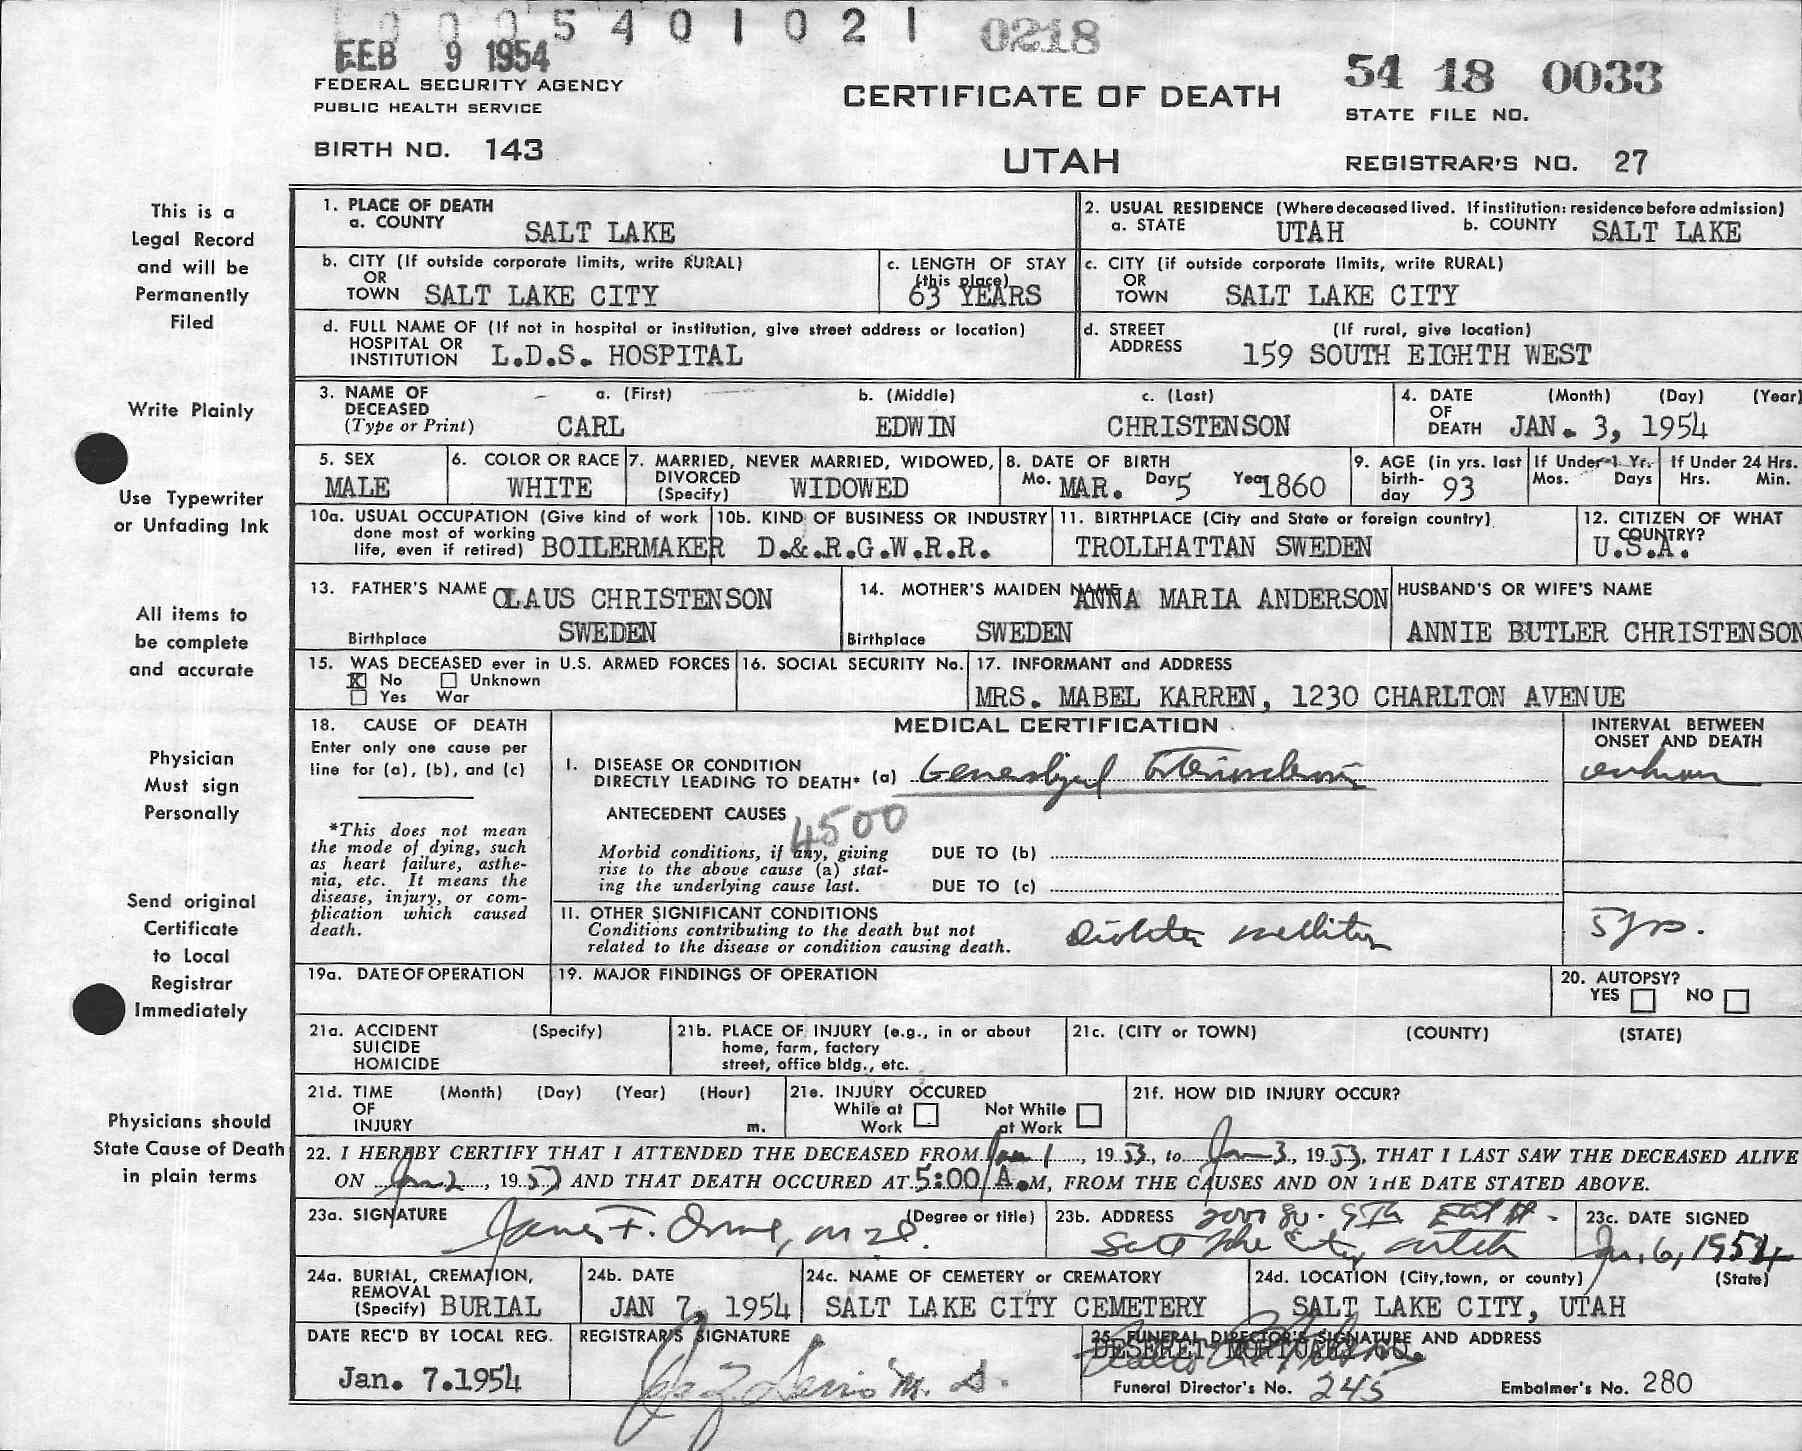 0005401021 0218
FEB 9 1954
FEDERAL SECURITY AGENCY
PUBLIC HEALTH SERVICE
BIRTH NO. 143
CERTIFICATE OF DEATH
UTAH
54 18 0033
STATE FILE NO.
REGISTRAR'S NO. 27
This is a
Legal Record
and will be
Permanently
Filed
Write Plainly
Use Typewriter
or Unfading Ink
All items to
be complete
and accurate
Physician
Must sign
Personally
Send original
Certificate
to Local
Registrar
Immediately
Physicians should
State Cause of Death
in plain terms
1. PLACE OF DEATH
a. COUNTY SALT LAKE
2. USUAL RESIDENCE (Where deceased lived. If institution: residence before admission)
a. STATE UTAH b. COUNTY SALT LAKE
b. CITY (If outside corporate limits, write RURAL)
OR
TOWN SALT LAKE CITY
c. LENGTH OF STAY
(this place)
63 YEARS
c. CITY (if outside corporate limits, write RURAL)
OR
TOWN SALT LAKE CITY
d. FULL NAME OF (If not in hospital or institution, give street address or location)
HOSPITAL OR
INSTITUTION L.D.S. HOSPITAL
d. STREET (If rural, give location)
ADDRESS 159 SOUTH EIGHTH WEST
3. NAME OF a. (First) b. (Middle) c. (Last)
DECEASED
(Type or Print) CARL EDWIN CHRISTENSON
4. DATE (Month) (Day) (Year)
OF
DEATH JAN. 3, 1954
5. SEX
MALE
6. COLOR OR RACE
WHITE
7. MARRIED, NEVER MARRIED, WIDOWED,
DIVORCED
(Specify) WIDOWED
8. DATE OF BIRTH
Mo. MAR. Day 5 Year 1860
9. AGE (in yrs. last
birth-
day 93
If Under 1 Yr.
Mos. Days
If Under 24 Hrs.
Hrs. Min.
10a. USUAL OCCUPATION (Give kind of work
done most of working
life, even if retired) BOILERMAKER
10b. KIND OF BUSINESS OR INDUSTRY
D.&.R.G.W.R.R.
11. BIRTHPLACE (City and State or foreign country)
TROLLHATTAN SWEDEN
12. CITIZEN OF WHAT
COUNTRY?
U.S.A.
13. FATHER'S NAME CLAUS CHRISTENSON
Birthplace SWEDEN
14. MOTHER'S MAIDEN NAME ANNA MARIA ANDERSON
Birthplace SWEDEN
HUSBAND'S OR WIFE'S NAME
ANNIE BUTLER CHRISTENSON
15. WAS DECEASED ever in U.S. ARMED FORCES
X No Unknown
Yes War
16. SOCIAL SECURITY No.
17. INFORMANT and ADDRESS
MRS. MABEL KARREN, 1230 CHARLTON AVENUE
18. CAUSE OF DEATH
Enter only one cause per
line for (a), (b), and (c)
*This does not mean
the mode of dying, such
as heart failure, asthe-
nia, etc. It means the
disease, injury, or com-
plication which caused
death.
MEDICAL CERTIFICATION
INTERVAL BETWEEN
ONSET AND DEATH
I. DISEASE OR CONDITION
DIRECTLY LEADING TO DEATH* (a) Generalized Arteriosclerosis unknown
ANTECEDENT CAUSES
4500
Morbid conditions, if any, giving
rise to the above cause (a) stat-
ing the underlying cause last.
DUE TO (b)
DUE TO (c)
II. OTHER SIGNIFICANT CONDITIONS
Conditions contributing to the death but not
related to the disease or condition causing death.
Diabetes mellitus 5 yrs.
19a. DATE OF OPERATION
19. MAJOR FINDINGS OF OPERATION
20. AUTOPSY?
YES NO
21a. ACCIDENT (Specify)
SUICIDE
HOMICIDE
21b. PLACE OF INJURY (e.g., in or about
home, farm, factory
street, office bldg., etc.
21c. (CITY or TOWN) (COUNTY) (STATE)
21d. TIME (Month) (Day) (Year) (Hour)
OF
INJURY m.
21e. INJURY OCCURED
While at Work Not While at Work
21f. HOW DID INJURY OCCUR?
22. I HEREBY CERTIFY THAT I ATTENDED THE DECEASED FROM Jan 1, 1953, to Jan 3, 1953, THAT I LAST SAW THE DECEASED ALIVE
ON Jan 2, 1953 AND THAT DEATH OCCURED AT 5:00 A.M, FROM THE CAUSES AND ON THE DATE STATED ABOVE.
23a. SIGNATURE (Degree or title)
James F. Orme, M.D.
23b. ADDRESS 2000 So. 9th East St.
Salt Lake City, Utah
23c. DATE SIGNED
Jan. 6, 1954
24a. BURIAL, CREMATION,
REMOVAL
(Specify) BURIAL
24b. DATE
JAN 7, 1954
24c. NAME OF CEMETERY or CREMATORY
SALT LAKE CITY CEMETERY
24d. LOCATION (City, town, or county) (State)
SALT LAKE CITY, UTAH
DATE REC'D BY LOCAL REG.
Jan. 7.1954
REGISTRAR'S SIGNATURE
M. D.
25. FUNERAL DIRECTOR'S SIGNATURE AND ADDRESS
DESERET MORTUARY CO.
Funeral Director's No. 245 Embalmer's No. 280